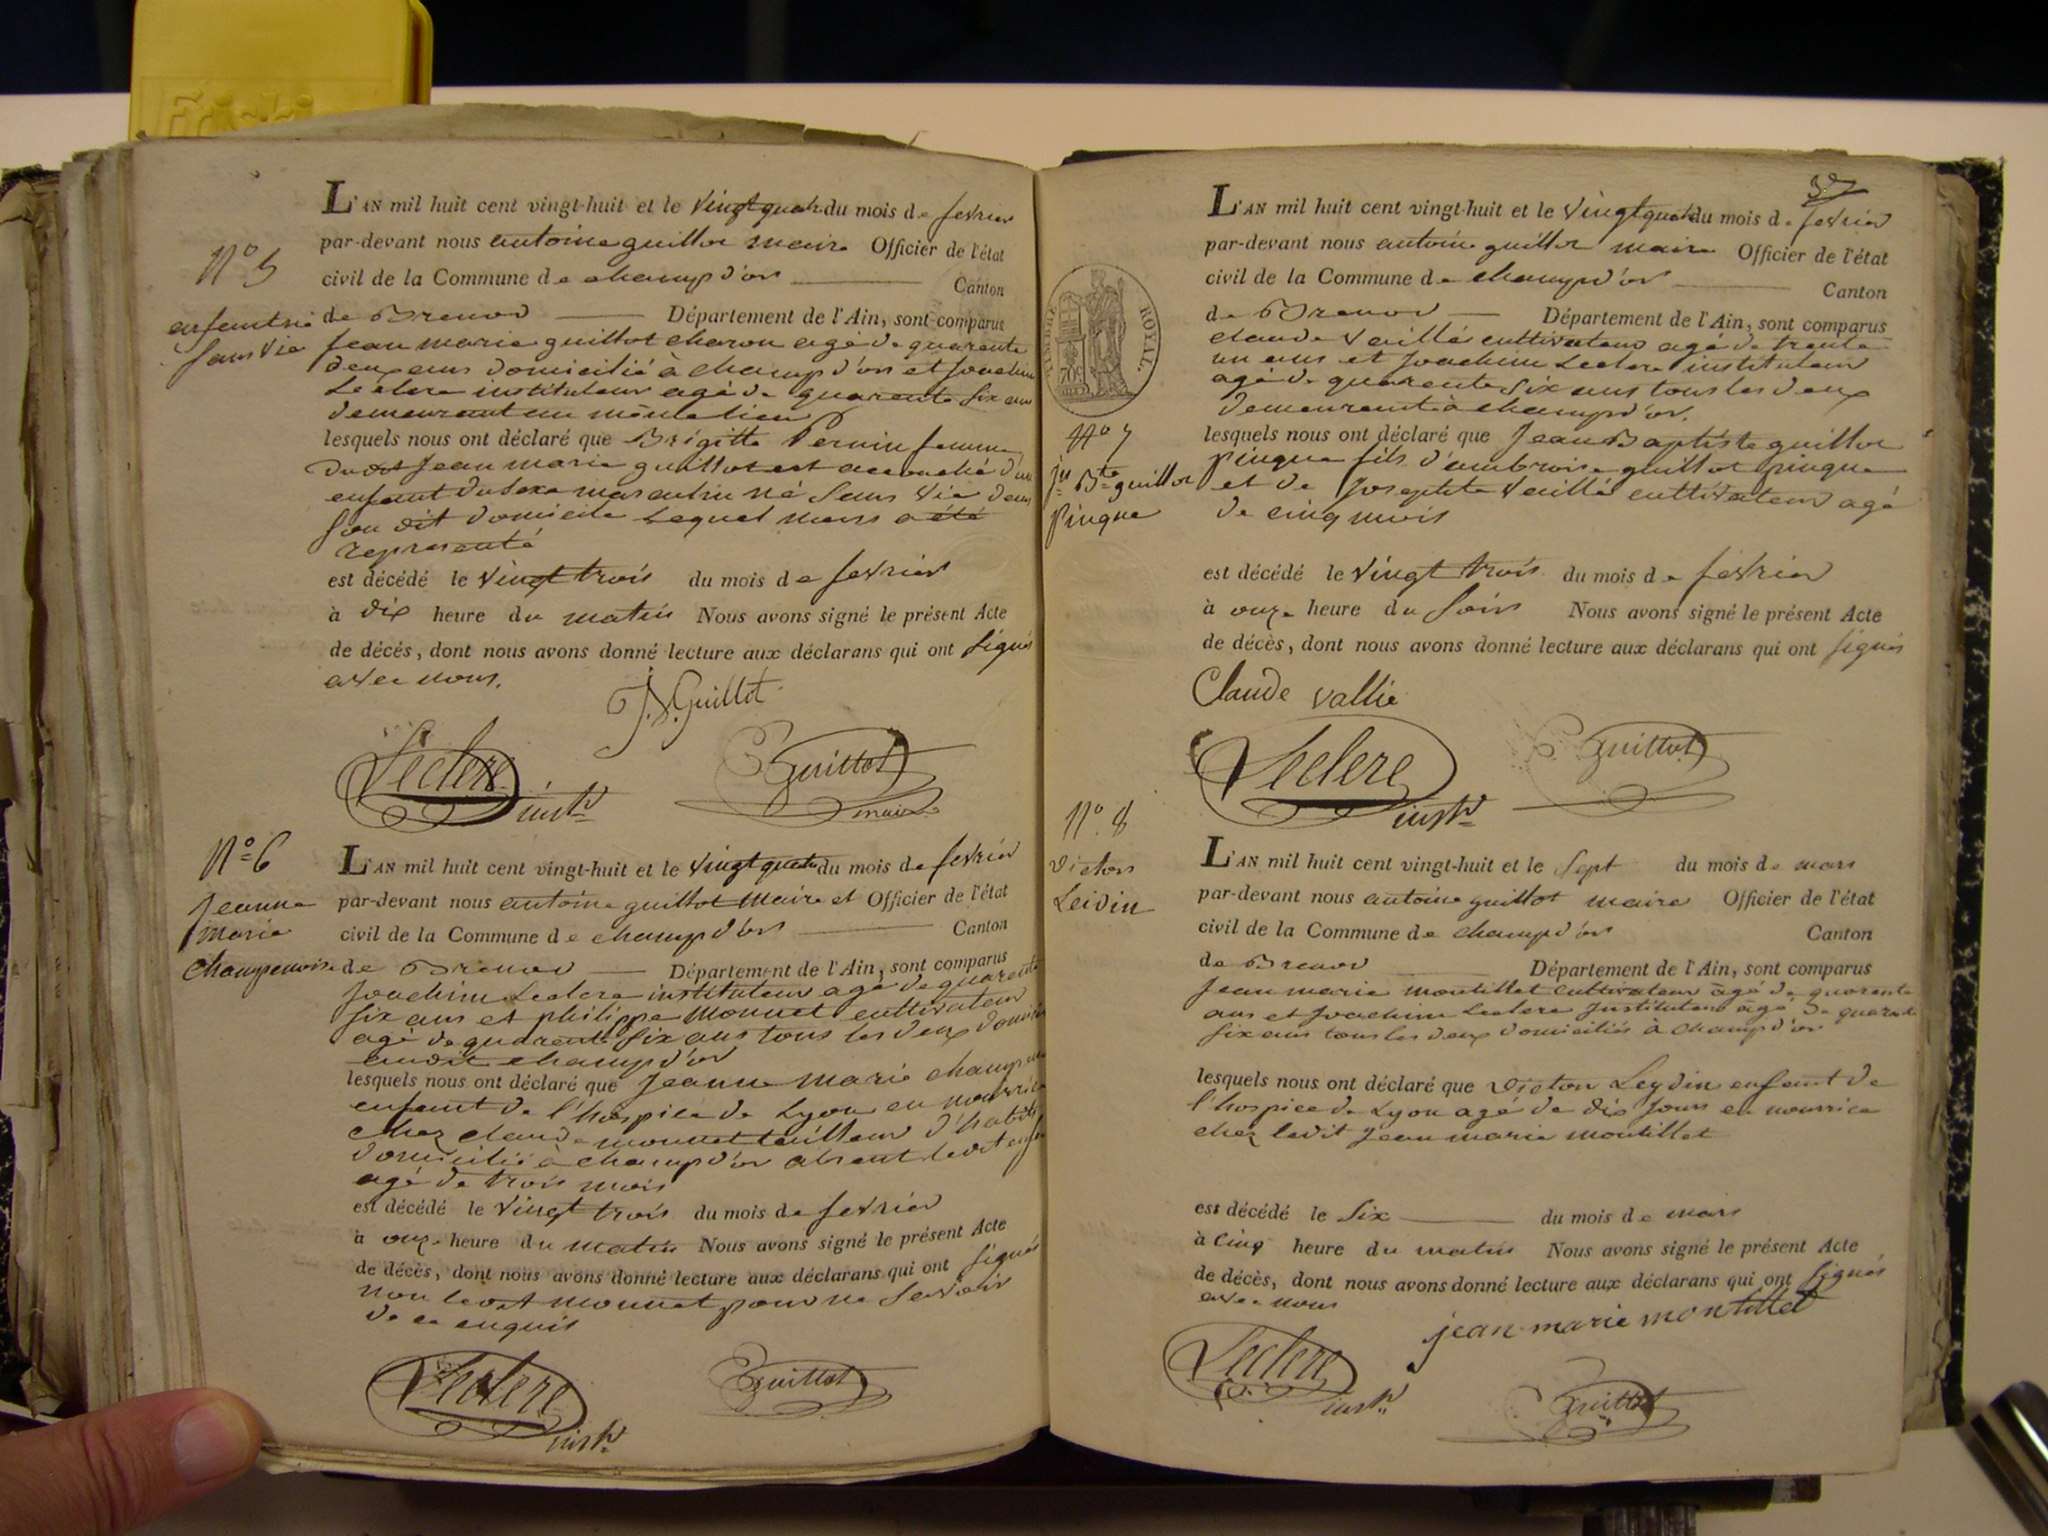 L'AN mil huit cent vingt-huit et le vingt quatre du mois de fevrier
par-devant nous antoine guillot maire Officier de l'état
N° 5
civil de la Commune de champd'or Canton
enfant né
sans vie
de Brenod Département de l'Ain, sont comparus
jean marie guillot charon agé de quarente
deux ans domicilié à champd'or et joachim
Leclerc instituteur agé de quarente six ans
demeurant au même lieu
lesquels nous ont déclaré que Brigitte Pernin femme
dudit jean marie guillot est accouché d'un
enfant du sexe masculin né sans vie dans
son dit domicile Lequel nous a été
representé
est décédé le vingt trois du mois de fevrier
à dix heure du matin Nous avons signé le présent Acte
de décés, dont nous avons donné lecture aux déclarans qui ont signés
avec nous.
J.M. Guillot
Leclerc instr
Guillot
maire
N° 6
Jeanne
marie
champenoise
L'AN mil huit cent vingt-huit et le vingt quatre du mois de fevrier
par-devant nous antoine guillot maire et Officier de l'état
civil de la Commune de champd'or Canton
de Brenod Département de l'Ain, sont comparus
joachim Leclerc instituteur agé de quarente
six ans et philippe monnet cultivateur
agé de quarente six ans tous les deux
audit champd'or
lesquels nous ont déclaré que jeanne marie
enfant de l'hospice de Lyon en nourrice
chez claude monnet tailleur d'habits
domicilié à champd'or absent ledit enfant
agé de trois mois
est décédé le vingt trois du mois de fevrier
à onze heure du matin Nous avons signé le présent Acte
de décés, dont nous avons donné lecture aux déclarans qui ont signés
non ledit monnet pour ne savoir
de ce enquis
Leclerc
instr
Guillot
L'AN mil huit cent vingt-huit et le vingt quatre du mois de fevrier
par-devant nous antoine guillot maire Officier de l'état
civil de la Commune de champd'or Canton
de Brenod Département de l'Ain, sont comparus
TIMBRE ROYAL
70c
claude Vaillé cultivateur agé de trente
un ans et joachim Leclerc instituteur
agé de quarente six ans tous les deux
demeurant à champd'or.
N° 7
jn Bte guillot
pingue
lesquels nous ont déclaré que Jean Baptiste guillot
pingue fils d'ambroise guillot pingue
et de Josephte Vaillé cultivateur agé
de cinq mois
est décédé le vingt trois du mois de fevrier
à onze heure du soir Nous avons signé le présent Acte
de décés, dont nous avons donné lecture aux déclarans qui ont signés
Claude vallié
Leclerc
instr
Guillot
N° 8
victor
Leidin
L'AN mil huit cent vingt-huit et le sept du mois de mars
par-devant nous antoine guillot maire Officier de l'état
civil de la Commune de champd'or Canton
de Brenod Département de l'Ain, sont comparus
Jean marie montillet cultivateur agé de quarente
ans et joachim Leclerc instituteur agé de quarente
six ans tous les deux domiciliés à champd'or
lesquels nous ont déclaré que victor Leydin enfant de
l'hospice de Lyon agé de dix jours en nourrice
chez ledit jean marie montillet
est décédé le six du mois de mars
à cinq heure du matin Nous avons signé le présent Acte
de décés, dont nous avons donné lecture aux déclarans qui ont signés
avec nous
jean marie montillet
Leclerc
instr
Guillot